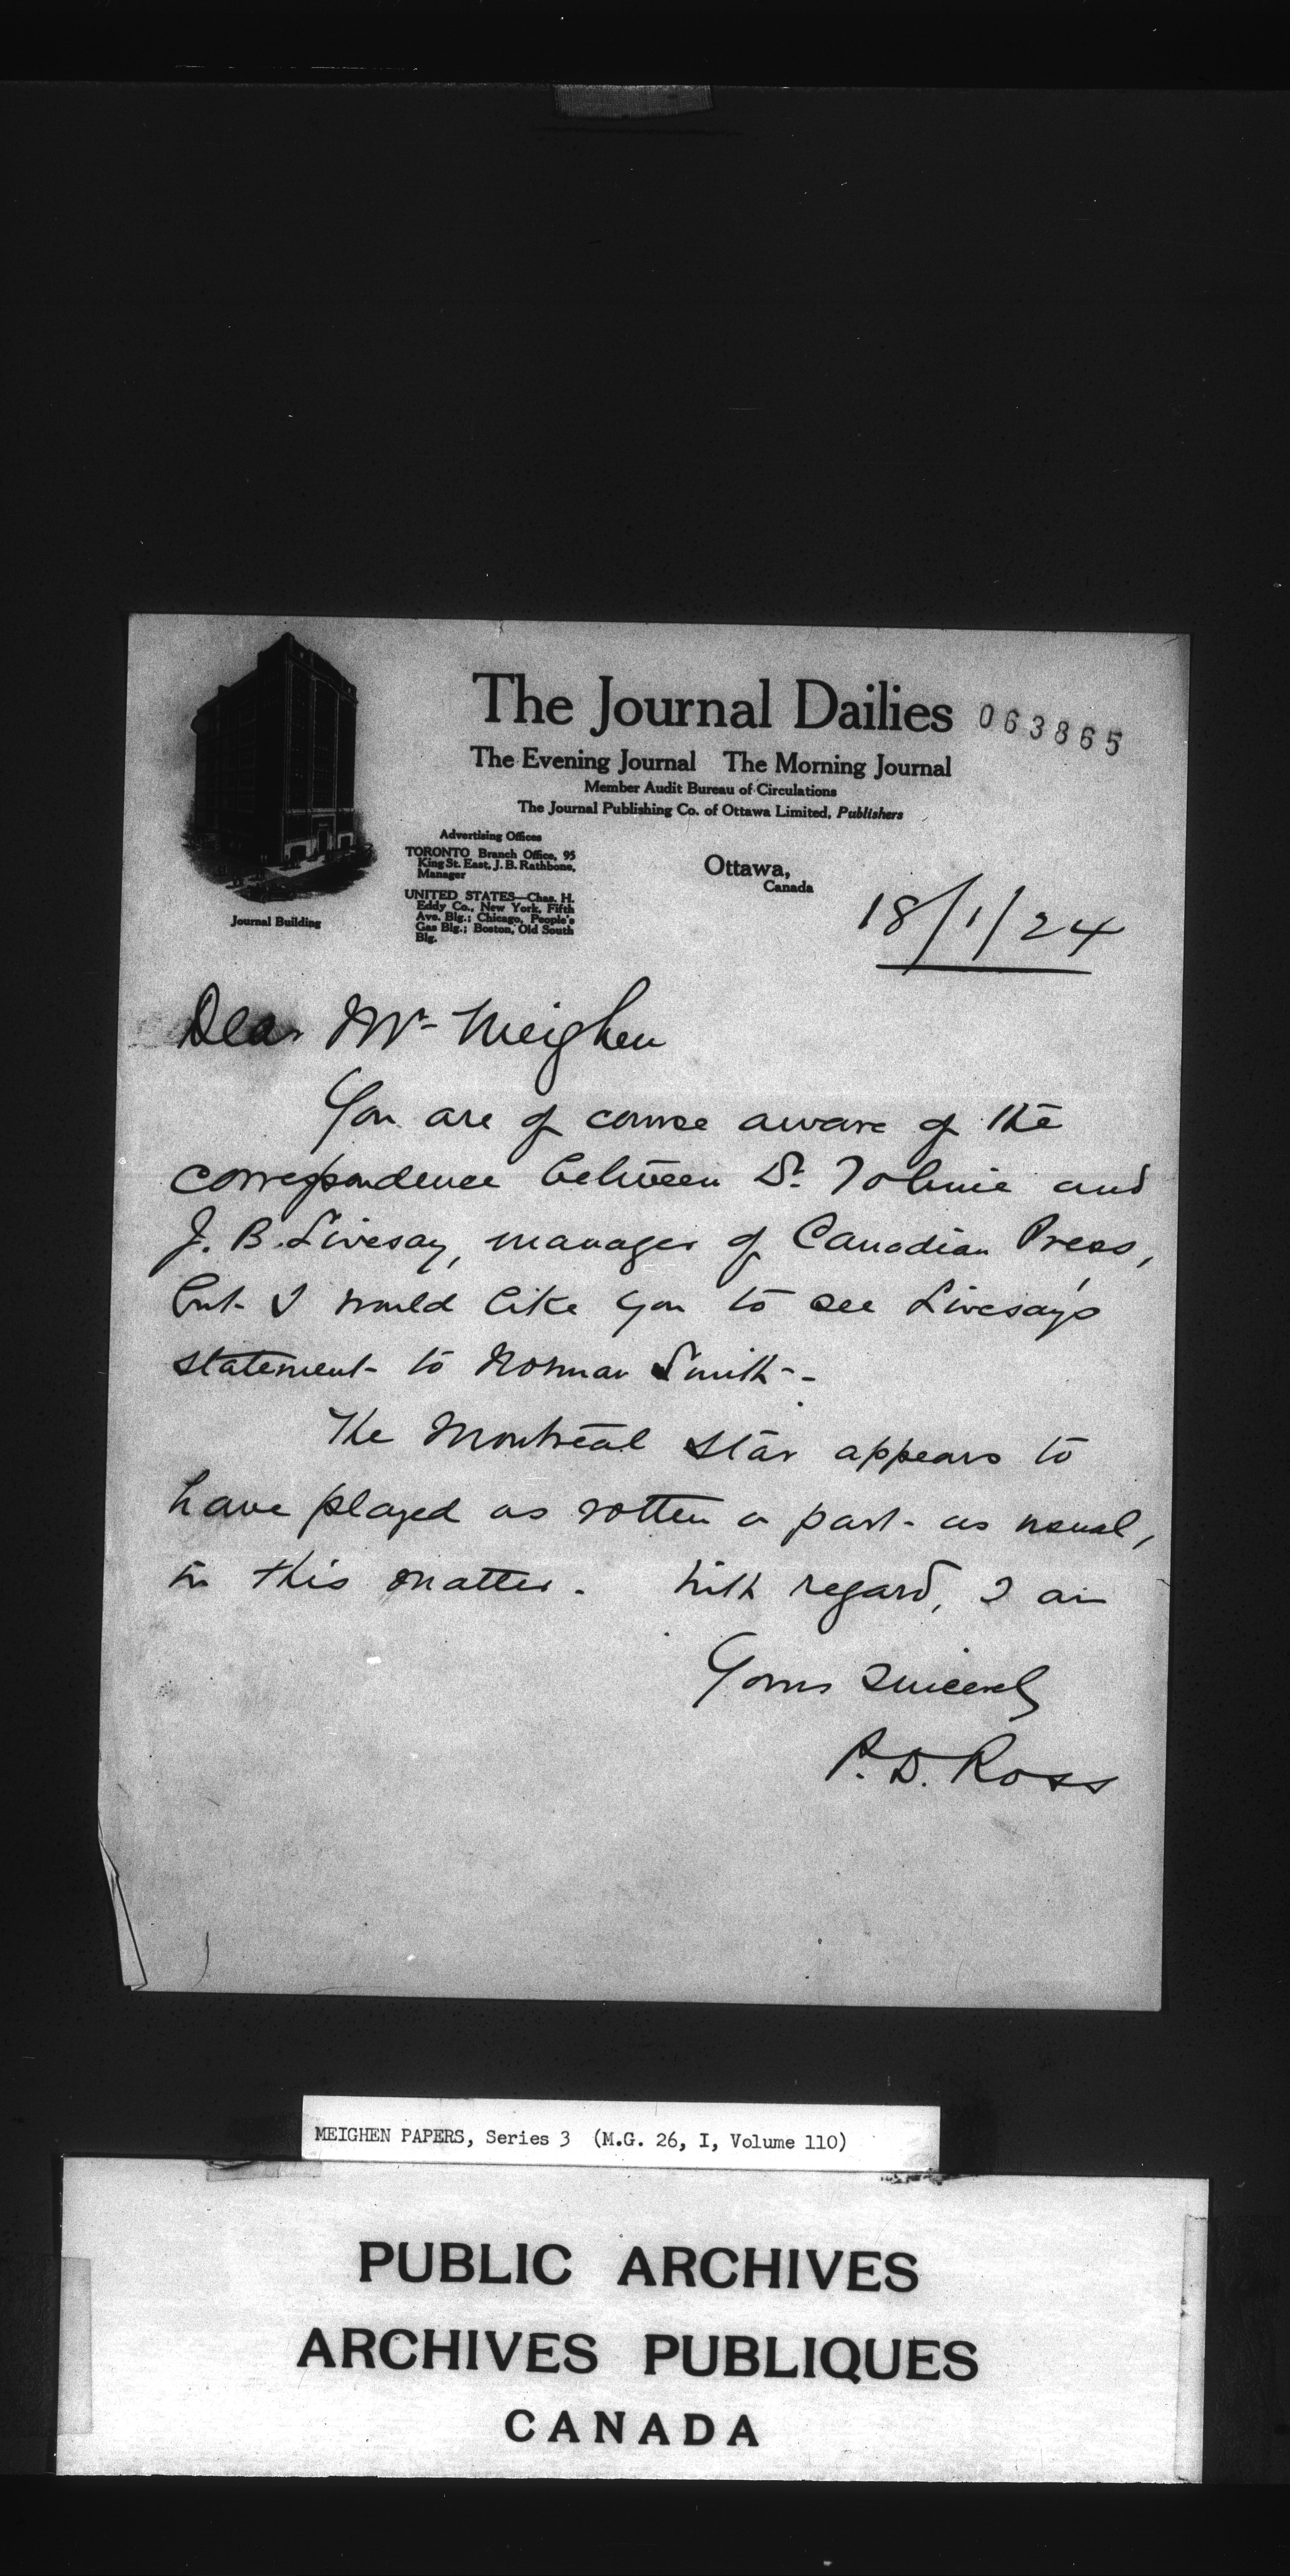 The Journal Dailies 063865
The Evening Journal The Morning Journal
Member Audit Bureau of Circulations
The Journal Publishing Co. of Ottawa Limited, Publishers
Advertising Offices
TORONTO Branch Office, 95
King St. East, J. B. Rathbone,
Manager
UNITED STATES—Chas. H.
Eddy Co., New York, Fifth
Ave. Blg.; Chicago, People's
Gas Blg.; Boston, Old South
Blg.
Journal Building
Ottawa,
Canada
18/1/24
Dear Mr Meighen
You are of course aware of the
correspondence between Dr. Tolmie and
J. B. Livesay, manager of Canadian Press,
but I would like you to see Livesay's
statement to Norman Smith -
The Montreal Star appears to
have played as rotten a part as usual,
in this matter. With regard, I am
Yours sincerely
P. D. Ross
MEIGHEN PAPERS, Series 3 (M.G. 26, I, Volume 110)
PUBLIC ARCHIVES
ARCHIVES PUBLIQUES
CANADA